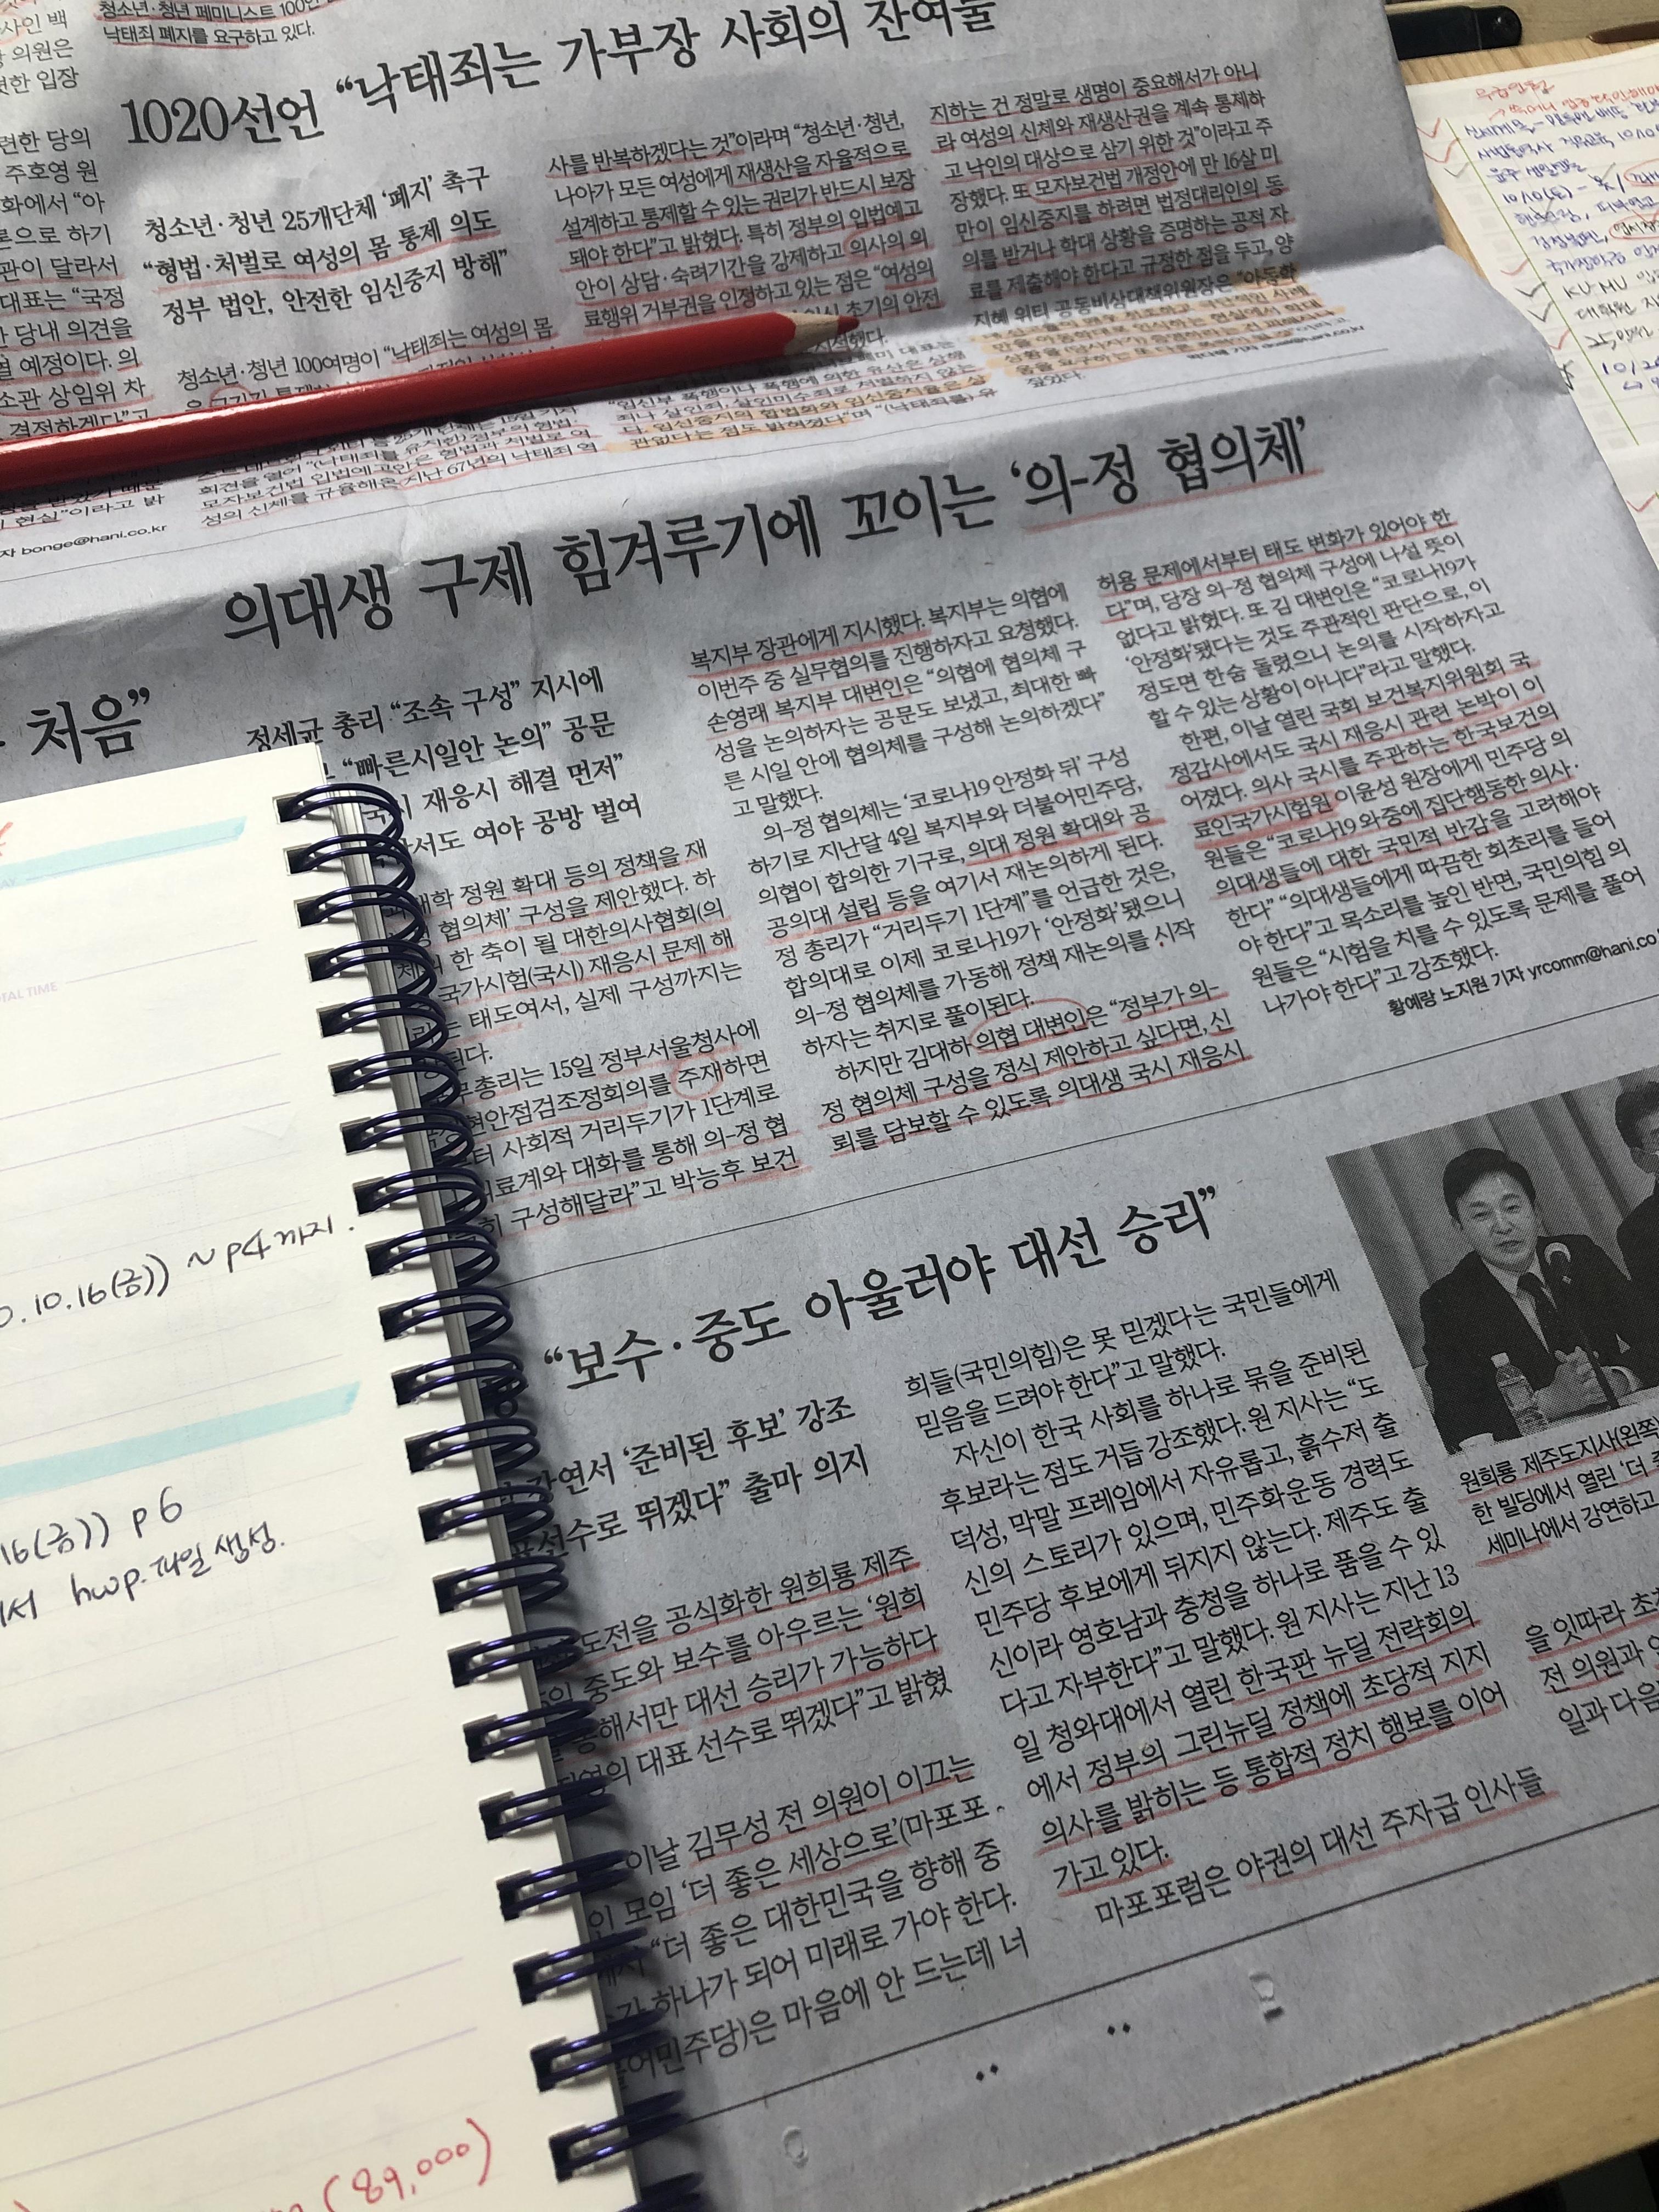 청소년·청년 페미니스트 100인
낙태죄 폐지를 요구하고 있다.
사인 백
의원은
한 입장
련한 당의
주호영 원
화에서 “아
론으로 하기
관이 달라서
대표는 “국정
당내 의견을
결 예정이다. 의
소관 상임위 차
결정하겠다”고
현실”이라고 밝
bonge@hani.co.kr
1020선언 “낙태죄는 가부장 사회의 잔여물
청소년·청년 25개단체 ‘폐지’ 촉구
“형법·처벌로 여성의 몸 통제 의도
정부 법안, 안전한 임신중지 방해”
청소년·청년 100여명이 “낙태죄는 여성의 몸
회견을 열어 “(낙태죄를 유지한) 정부의 형법·
모자보건법 입법예고안은 형법과 처벌로 여
성의 신체를 규율해온 지난 67년의 낙태죄 역
사를 반복하겠다는 것”이라며 “청소년·청년,
나아가 모든 여성에게 재생산을 자율적으로
설계하고 통제할 수 있는 권리가 반드시 보장
돼야 한다”고 밝혔다. 특히 정부의 입법예고
안이 상담·숙려기간을 강제하고 의사의 의
료행위 거부권을 인정하고 있는 점은 “여성의
초기의 안전
“임신부 폭행이나 폭행에 의한 유산은 상해
죄나 살인죄, 살인미수죄로 처벌하지 않는
다. 임신중지의 합법화와 임신중지율은 상
관없다는 점도 밝혀졌다”며 “(낙태죄를) 유
지하는 건 정말로 생명이 중요해서가 아니
라 여성의 신체와 재생산권을 계속 통제하
고 낙인의 대상으로 삼기 위한 것”이라고 주
장했다. 또 모자보건법 개정안에 만 16살 미
만이 임신중지를 하려면 법정대리인의 동
의를 받거나 학대 상황을 증명하는 공적 자
료를 제출해야 한다고 규정한 점을 두고, 양
지혜 위티 공동비상대책위원장은 “아동학
짚었다.
처음”
의대생 구제 힘겨루기에 꼬이는 ‘의-정 협의체’
정세균 총리 “조속 구성” 지시에
“빠른시일안 논의” 공문
국시 재응시 해결 먼저”
서도 여야 공방 벌여
대학 정원 확대 등의 정책을 재
협의체’ 구성을 제안했다. 하
한 축이 될 대한의사협회(의
국가시험(국시) 재응시 문제 해
태도여서, 실제 구성까지는
된다.
총리는 15일 정부서울청사에
현안점검조정회의를 주재하면
터 사회적 거리두기가 1단계로
의료계와 대화를 통해 의-정 협
히 구성해달라”고 박능후 보건
복지부 장관에게 지시했다. 복지부는 의협에
이번주 중 실무협의를 진행하자고 요청했다.
손영래 복지부 대변인은 “의협에 협의체 구
성을 논의하자는 공문도 보냈고, 최대한 빠
른 시일 안에 협의체를 구성해 논의하겠다”
고 말했다.
의-정 협의체는 ‘코로나19 안정화 뒤’ 구성
하기로 지난달 4일 복지부와 더불어민주당,
의협이 합의한 기구로, 의대 정원 확대와 공
공의대 설립 등을 여기서 재논의하게 된다.
정 총리가 “거리두기 1단계”를 언급한 것은,
합의대로 이제 코로나19가 ‘안정화’됐으니
의-정 협의체를 가동해 정책 재논의를 시작
하자는 취지로 풀이된다.
하지만 김대하 의협 대변인은 “정부가 의-
정 협의체 구성을 정식 제안하고 싶다면, 신
뢰를 담보할 수 있도록 의대생 국시 재응시
허용 문제에서부터 태도 변화가 있어야 한
다”며, 당장 의-정 협의체 구성에 나설 뜻이
없다고 밝혔다. 또 김 대변인은 “코로나19가
‘안정화’됐다는 것도 주관적인 판단으로, 이
정도면 한숨 돌렸으니 논의를 시작하자고
할 수 있는 상황이 아니다”라고 말했다.
한편, 이날 열린 국회 보건복지위원회 국
정감사에서도 국시 재응시 관련 논박이 이
어졌다. 의사 국시를 주관하는 한국보건의
료인국가시험원 이윤성 원장에게 민주당 의
원들은 “코로나19 와중에 집단행동한 의사·
의대생들에 대한 국민적 반감을 고려해야
한다” “의대생들에게 따끔한 회초리를 들어
야 한다”고 목소리를 높인 반면, 국민의힘 의
원들은 “시험을 치를 수 있도록 문제를 풀어
나가야 한다”고 강조했다.
황예랑 노지원 기자 yrcomm@hani.co
“보수·중도 아울러야 대선 승리”
강연서 ‘준비된 후보’ 강조
선수로 뛰겠다” 출마 의지
도전을 공식화한 원희룡 제주
중도와 보수를 아우르는 ‘원희
통해서만 대선 승리가 가능하다
의 대표 선수로 뛰겠다”고 밝혔
이날 김무성 전 의원이 이끄는
모임 ‘더 좋은 세상으로’(마포포
“더 좋은 대한민국을 향해 중
하나가 되어 미래로 가야 한다.
어민주당)은 마음에 안 드는데 너
희들(국민의힘)은 못 믿겠다는 국민들에게
믿음을 드려야 한다”고 말했다.
자신이 한국 사회를 하나로 묶을 준비된
후보라는 점도 거듭 강조했다. 원 지사는 “도
덕성, 막말 프레임에서 자유롭고, 흙수저 출
신의 스토리가 있으며, 민주화운동 경력도
민주당 후보에게 뒤지지 않는다. 제주도 출
신이라 영호남과 충청을 하나로 품을 수 있
다고 자부한다”고 말했다. 원 지사는 지난 13
일 청와대에서 열린 한국판 뉴딜 전략회의
에서 정부의 그린뉴딜 정책에 초당적 지지
의사를 밝히는 등 통합적 정치 행보를 이어
가고 있다.
마포포럼은 야권의 대선 주자급 인사들
원희룡 제주도지사(왼쪽
한 빌딩에서 열린 ‘더 좋
세미나에서 강연하고
을 잇따라 초
전 의원과
일과 다음
TAL TIME
10.16(금)) ~ p4까지.
16(금)) p6
서 hwp.파일 생성.
(89,000)
KU-MU
대학원
10/20